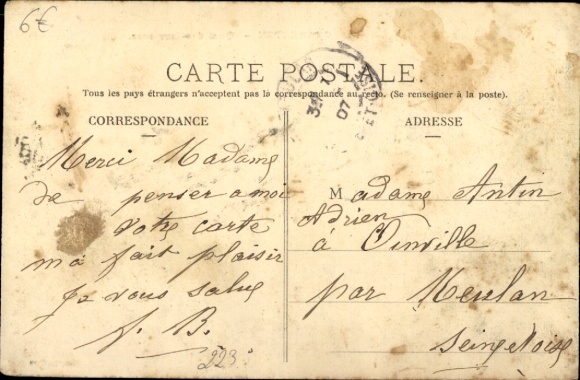 6€
CARTE POSTALE.
Tous les pays étrangers n'acceptent pas la correspondance au recto. (Se renseigner à la poste).
CORRESPONDANCE
Merci Madame
de penser a moi
votre carte
m'a fait plaisir
Je vous salue
J. B.
223
ADRESSE
Madame Antin
Adrien
à Oinville
par Meulan
Seine et Oise
07